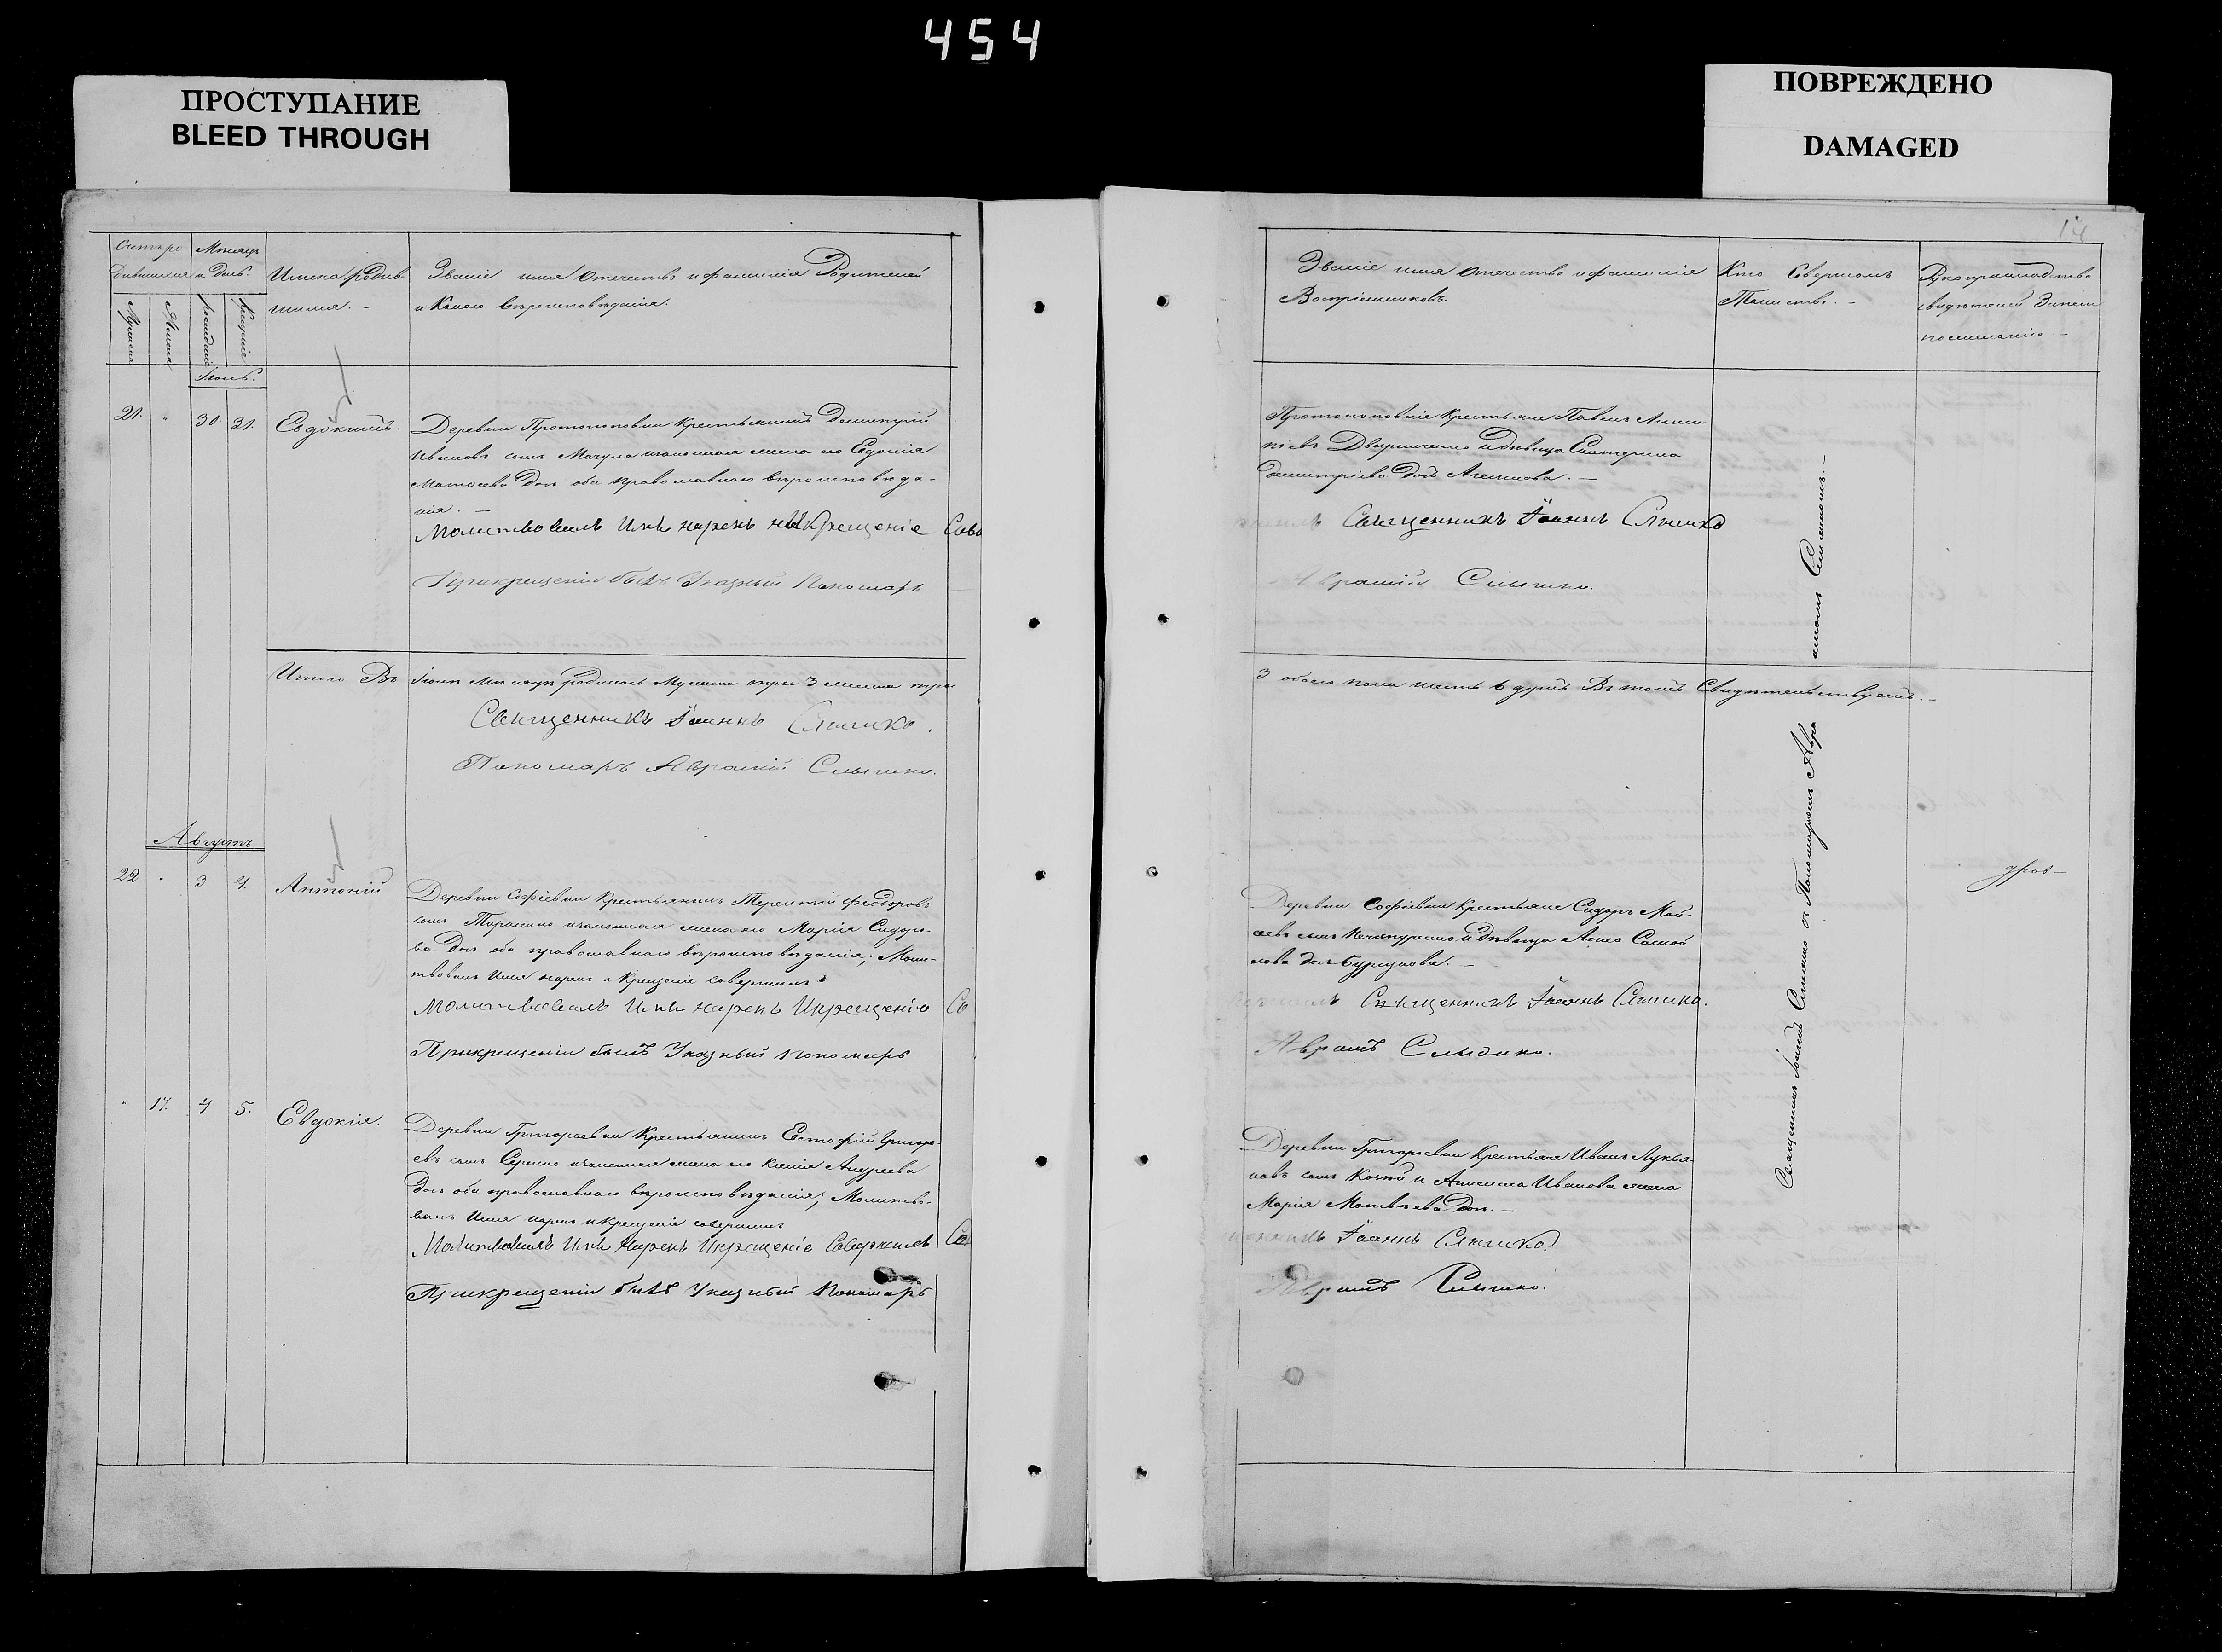 454
ПРОСТУПАНИЕ
BLEED THROUGH
ПОВРЕЖДЕНО
DAMAGED
14
Счетъ ро
дившихся
Мѣсяцъ
и День.
Имена родив
шихся. –
Званіе имя отечество и фамилія Родителей
и Какого вѣроисповѣданія.
Мужеска
Женска
Рожденіе
Крещеніе
Іюль.
21. " 30 31. Евдокимъ.
Деревни Протопоповки Крестьянинъ Димитрій
Ивановъ сынъ Мачула и законная жена его Евдокія
Матвеева Дочь оба православнаго вѣроисповѣда-
нія. –
Молитвовалъ Имя нарекъ и Крещеніе Сове
При крещеніи былъ Указный Пономарь
Итого Въ Іюлѣ Мѣсяцѣ родилось Мужеска три 3 женска три
Священникъ Іоаннъ Слышко.
Пономарь Аврамій Слышко.
Августъ
22 " 3 4. Антоній
Деревни Софіевки Крестьянинъ Терентій Феодоровъ
сынъ Тарасенко и законная жена его Марія Сидоро-
ва Дочь оба православнаго вѣроисповѣданія; Моли-
твовалъ Имя нарекъ и Крещеніе совершилъ
Молитвовалъ Имя нарекъ И крещеніе Со
При крещеніи былъ Указный пономарь
" 17. 4 5. Евдокія.
Деревни Григорьевки Крестьянинъ Естафій Григорь-
евъ сынъ и законная жена его Ксенія Андреева
Дочь оба православнаго вѣроисповѣданія; Молитво-
валъ Имя нарекъ и крещеніе совершилъ
Молитвовалъ Имя Нарекъ И крещеніе Совершилъ
При крещеніи былъ Указный Пономарь
Званіе имя отечество и фамилія
Воспріемниковъ.
Кто Совершалъ
Таинство. –
Рукоприкладство
свидѣтелей Записи
по желанію –
Протопоповскіе Крестьяне Павелъ
и дѣвица Екатерина
Димитріева Дочь –
Священникъ Іоаннъ Слышко
Аврамій Слышко.
3 обоего пола шесть 6 душъ Въ томъ Свидѣтельствуемъ. –
Деревни Софіевки Крестьяне Сидоръ Мои-
сеевъ сынъ и дѣвица Анна
дочь –
Священникъ Іоаннъ Слышко.
Аврамъ Слышко.
Деревни Григорьевки Крестьяне Иванъ Лукья-
новъ сынъ и Ивановa жена
Марія Матвѣева Дочь. –
Іоаннъ Слышко.
Аврамъ Слышко.
Священникъ Іоаннъ Слышко съ Пономаремъ Авра
аміемъ Слышкомъ. –